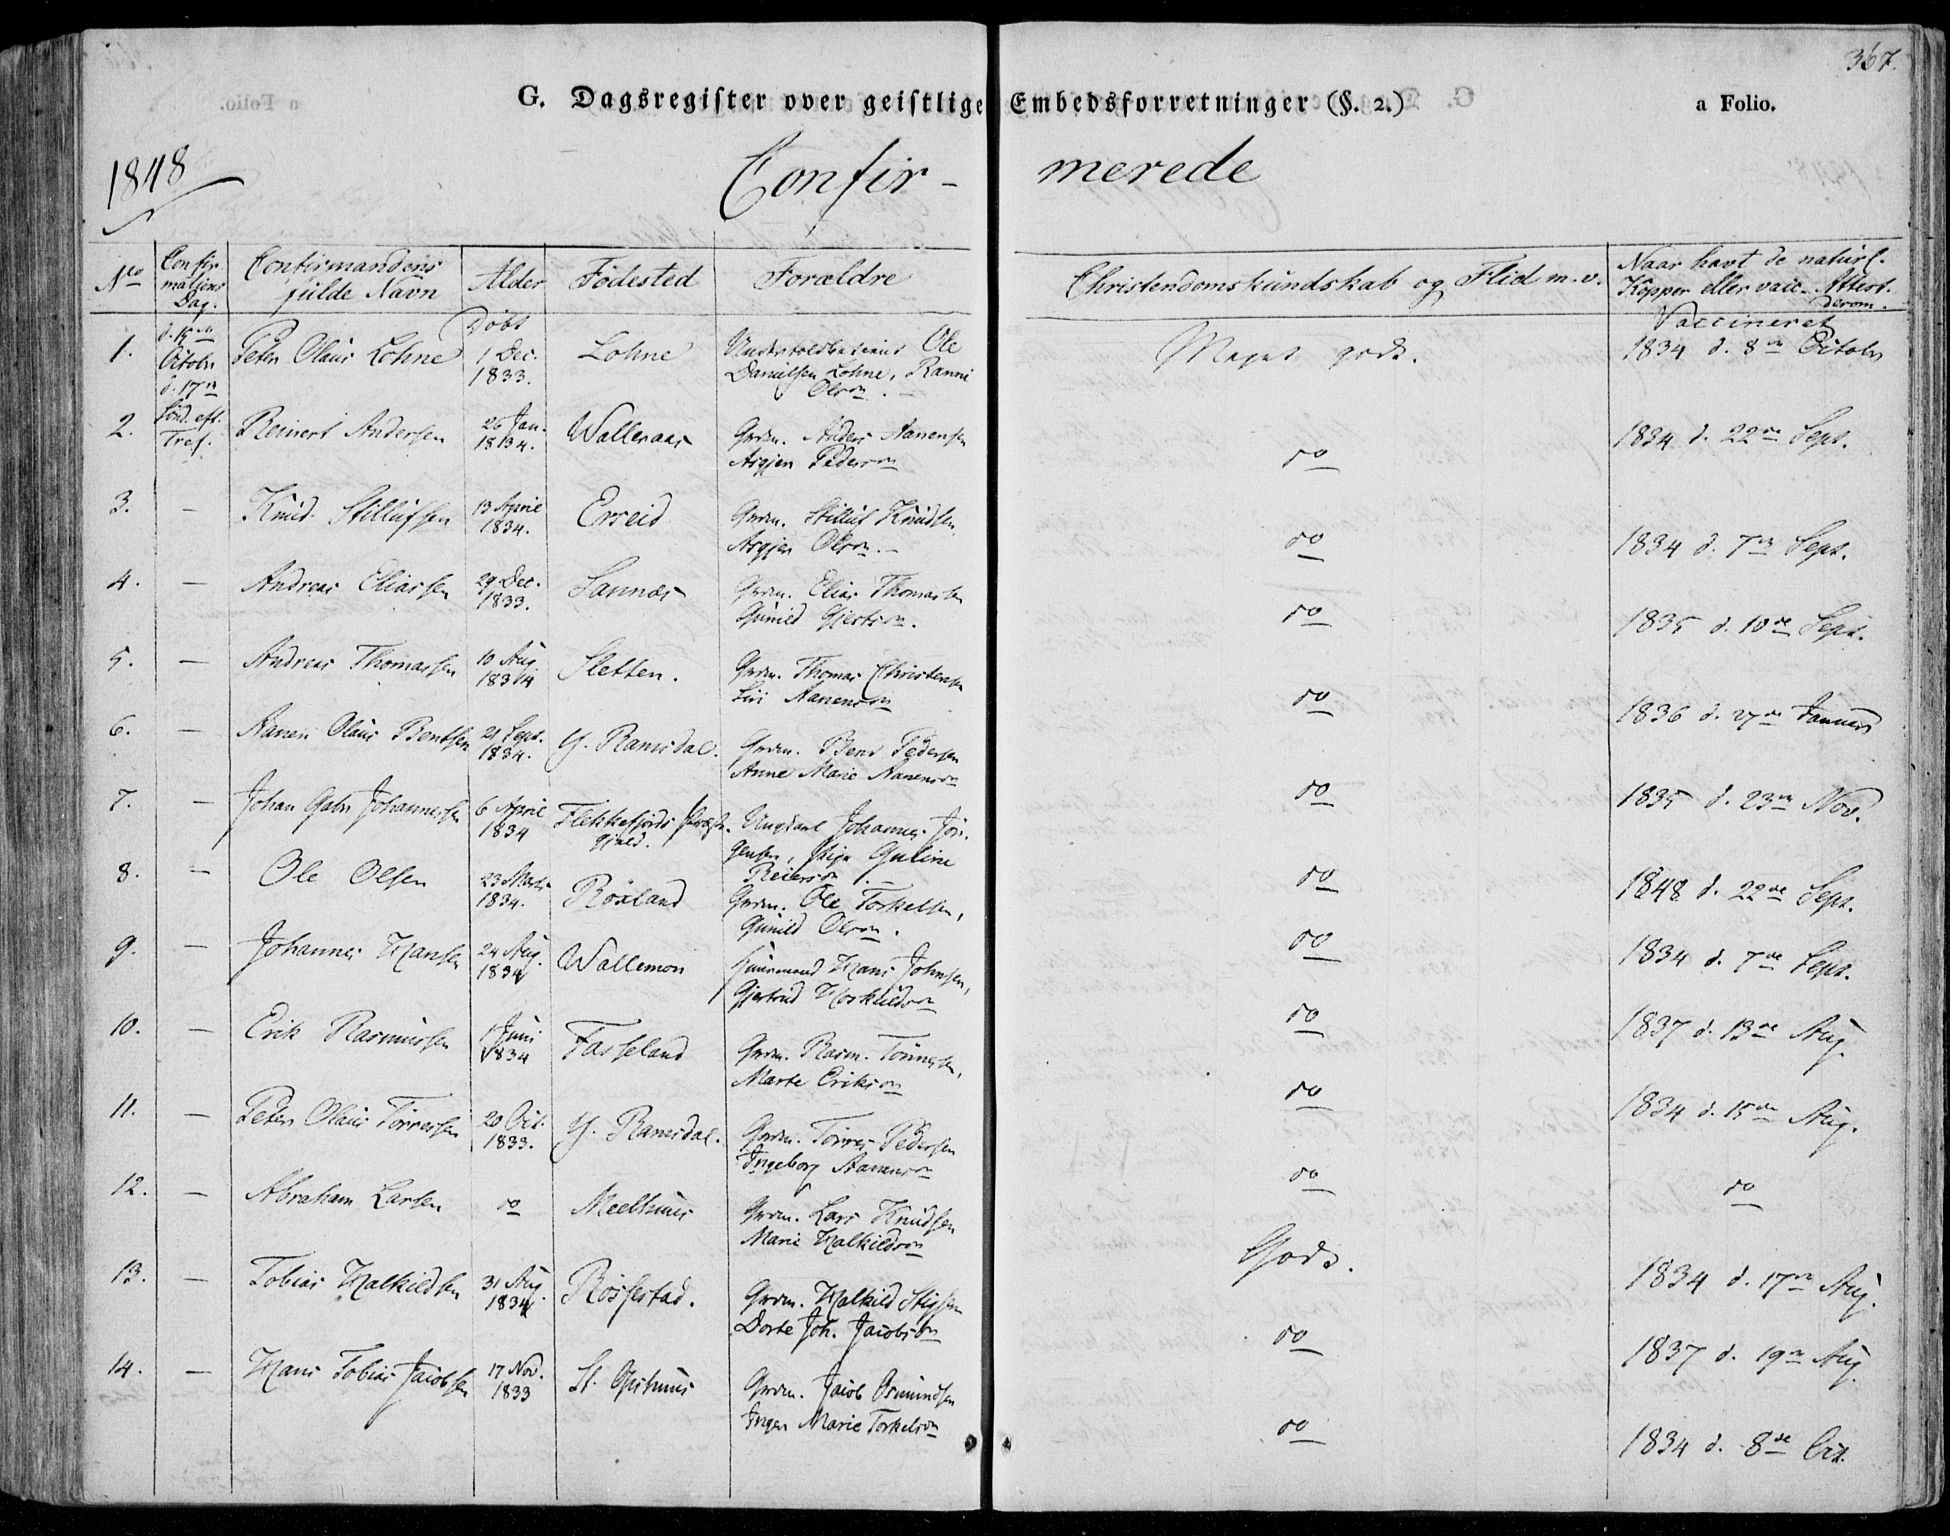 367.
G. Dagsregister over geistlige Embedsforretninger (§. 2.)
a Folio.
1848
Confir-merede
No
Confirmations Dag.
Confirmandens fulde Navn
Alder
Fødested
Forældre
Christendomskundskab og Flid m.v.
Naar havt de naturl. Kopper eller vacc. Attest. derom.
1. d. 15de October d. 17de Peter Olaus Lohne Døbt 1 Dec. 1833. Lohne Ole Danielsen Lohne, Ranni Olsdn. Meget godt. Vaccineret 1834 d. 8de Octobr
2. Sønd. eft. Tref. Reinert Andersen 26 Jan. 1834. Walleraas Grdm. Anders Aanensen Asgjer Pedersdn do 1834 d. 22de Sept.
3. — Knud Stillufsen 13 April 1834. Erseid Grdm. Stilluf Knudsen, Asgjer Olsdn. do 1834 d. 7de Sept.
4. — Andreas Eliassen 29 Dec. 1833. Sannæs Grdm. Elias Thomassen Gunild Gjertsdn. do 1835 d. 10de Sept.
5. — Andreas Thomassen 10 Aug. 1834 Sletten. Grdm. Thomas Christensen Siri Aanensdn do 1836 d. 27de Januar
6. — Aanen Olaus Bentsen 21 Sept. 1834. Y. Ramsdal. Grdm. Bent Pedersen Anne Marie Aanensdn do 1835 d. 23de Nov.
7. — Johan Gabr Johannessen 6 April 1834 Flekkefjords Præstegjeld. Ungkarl Johannes Jörgensen, Pige Guline Reiersdn. do 1848 d. 22de Sept.
8. — Ole Olsen 23 Marts 1834. Røiland Grdm. Ole Torkelsen, Gunild Olsdn. do 1834 d. 7de Sept.
9. — Johannes Hansen 24 Aug. 1834 Wallemon Huusmand Hans Johnsen, Gjertrud Hoskuldsdn do 1837 d. 13de Aug.
10. — Erik Rasmussen 1 Juni 1834 Fasseland Grdm. Rasm. Tønnesen, Marte Eriksdn do 1834 d. 15de Aug.
11. — Peter Olaus Tørresen 20 Oct. 1833. Y. Ramsdal. Grdm. Tørres Pedersen Ingeborg Aanensdn do do
12. — Abraham Larsen do Meelhuus Grdm. Lars Knudsen Marie Halkildsdn Godt. 1834 d. 17de Aug.
13. — Tobias Halkildsen 31 Aug. 1834 Røssestad. Grdm. Halkild Stigsen Dorte Joh. Jacobsdn do 1837 d. 19de Aug.
14. — Hans Tobias Jacobsen 17 Nov. 1833 St. Opsahuus Grdm. Jacob Osmundsen Inger Marie Torkelsdn do 1834 d. 8de Oct.